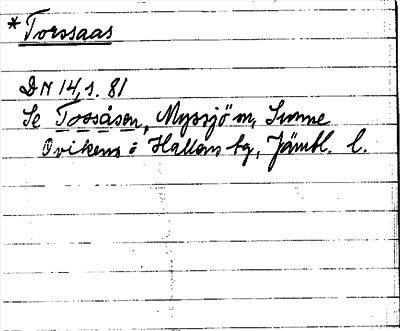 *Torssaas
DN 14, s. 81
Se Tossåsen, Myssjö m, Sunne
Ovikens o Hallens tg, Jämtl. l.